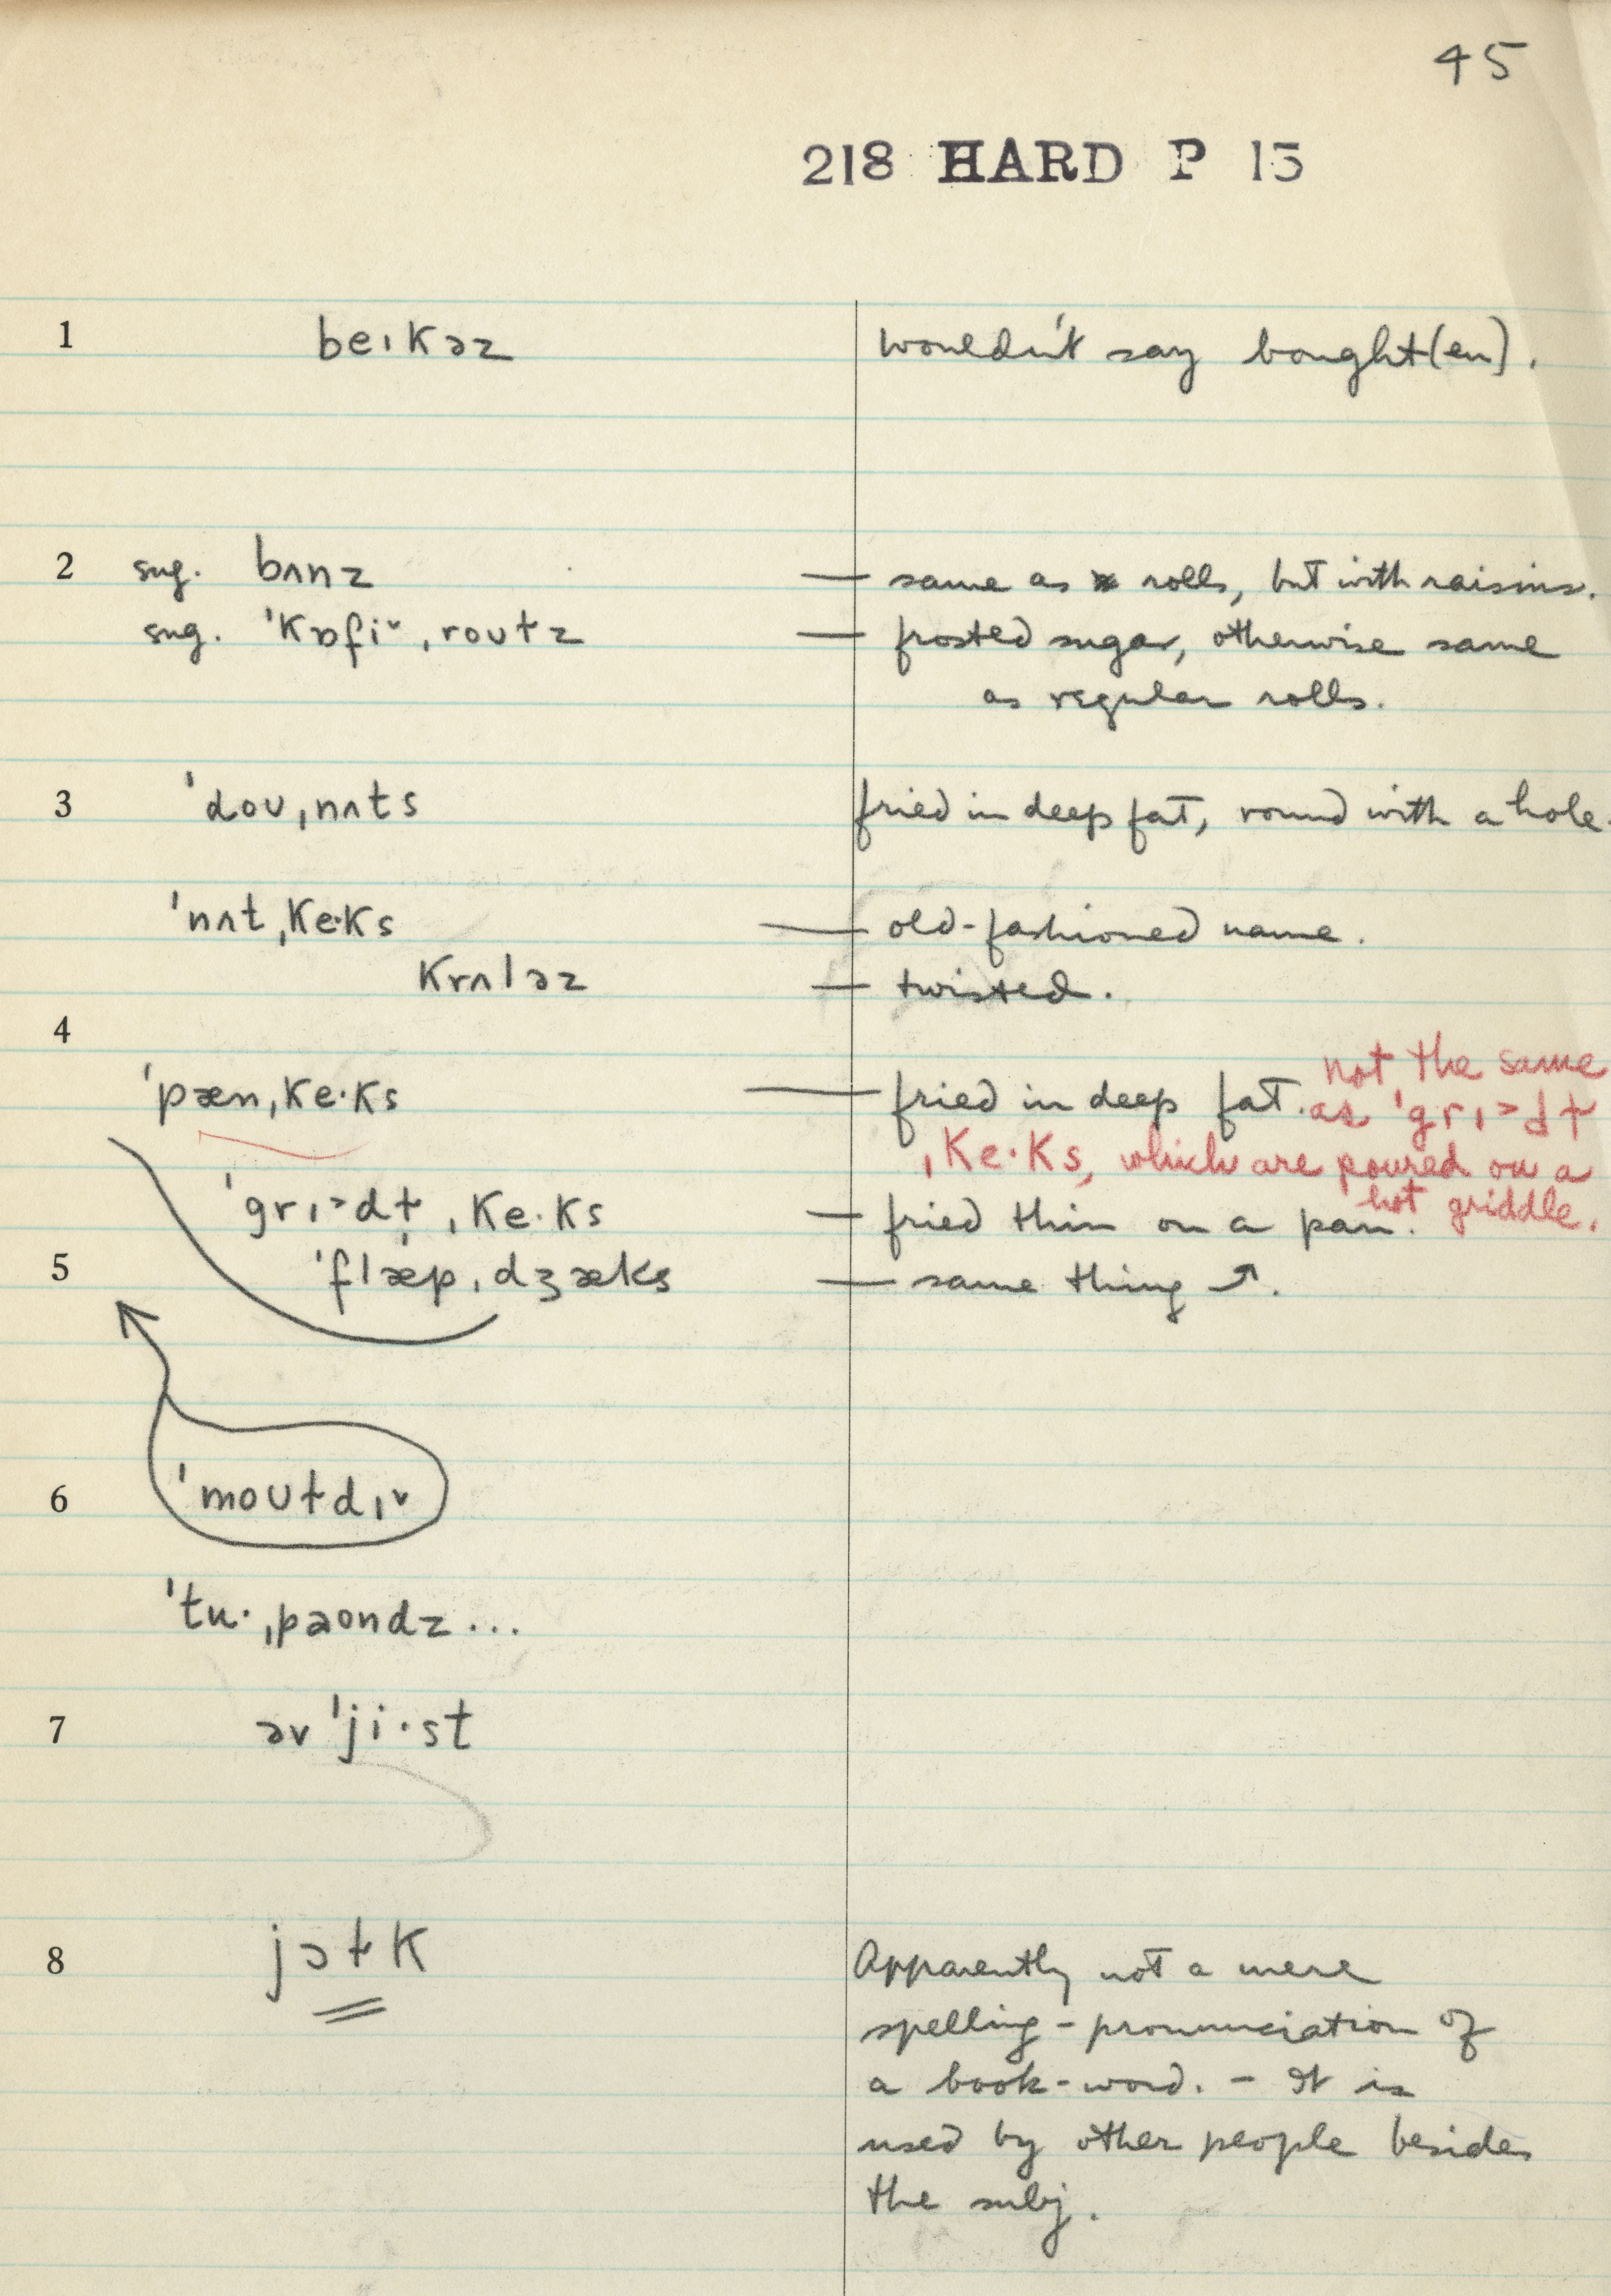 45
218 HARD P 15
1 beɪkəz wouldn't say bought(en).
2 sug. bʌnz — same as rolls, but with raisins.
sug. ˈkɒfiˇˌroʊɫz — frosted sugar, otherwise same
as regular rolls.
3 ˈdoʊˌnʌts fried in deep fat, round with a hole.
ˈnʌtˌke·ks — old-fashioned name.
krʌləz — twisted.
4
not the same
ˈpænˌke·ks — fried in deep fat. as ˈgrɪ˃dɫ
ˌke·ks, which are poured on a
hot griddle.
ˈgrɪ˃dɫˌke·ks — fried thin on a pan.
5 ˈflæpˌdʒæks — same thing ↗.
6 ˈmoʊɫdɪˇ
ˈtu·ˌpaʊndz...
7 əv ˈji·st
8 jɔɫk Apparently not a mere
spelling-pronunciation of
a book-word. - It is
used by other people besides
the subj.